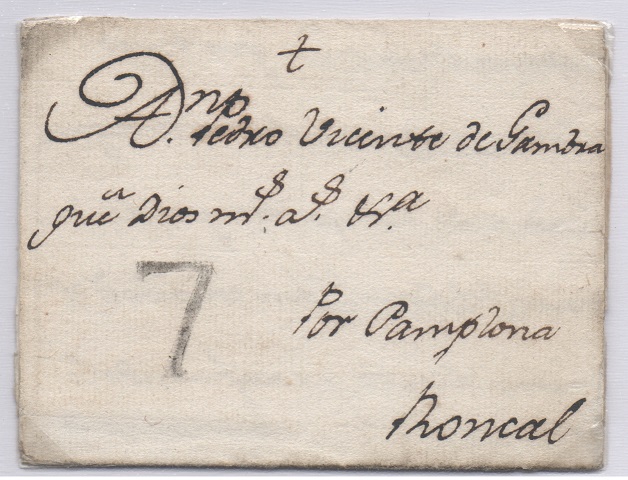 +
A Dn
Pedro Vicente de Gambra
gue Dios ms. as. &ra
7
Por Pamplona
Roncal